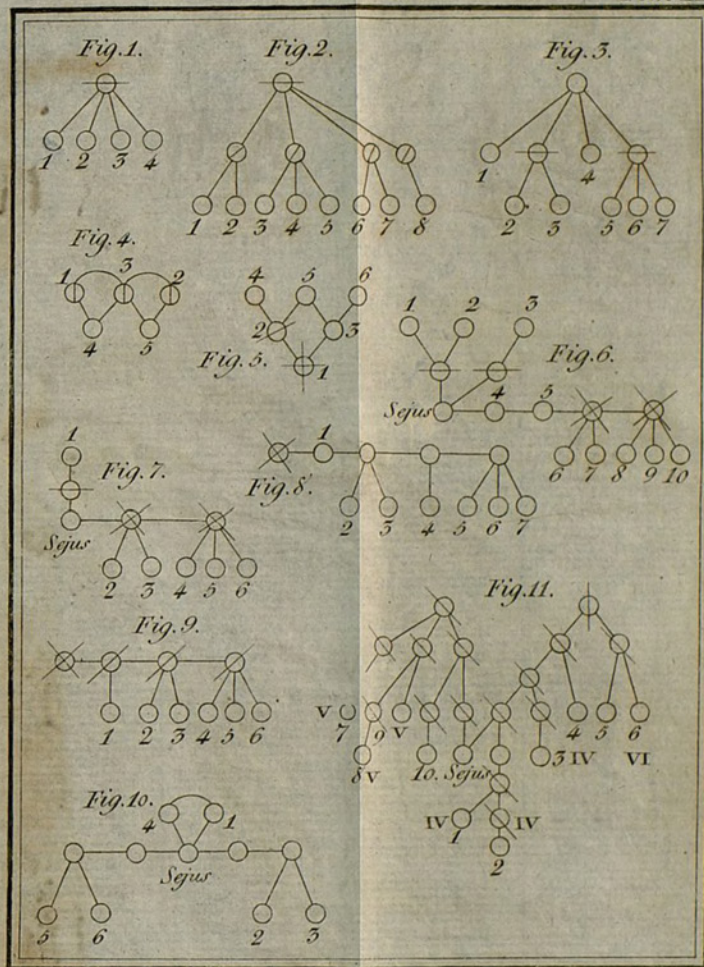 Fig. 1.
1 2 3 4
Fig. 2.
1 2 3 4 5 6 7 8
Fig. 3.
1 4
2 3 5 6 7
Fig. 4.
1 3 2
4 5
Fig. 5.
4 5 6
2 3
1
Fig. 6.
1 2 3
Sejus 4 5
6 7 8 9 10
Fig. 7.
1
Sejus
2 3 4 5 6
Fig. 8.
1
2 3 4 5 6 7
Fig. 9.
1 2 3 4 5 6
Fig. 10.
4 1
Sejus
5 6 2 3
Fig. 11.
V 7 9 V 4 5 6
8 V 10. Sejus 3 IV VI
IV 1 IV
2